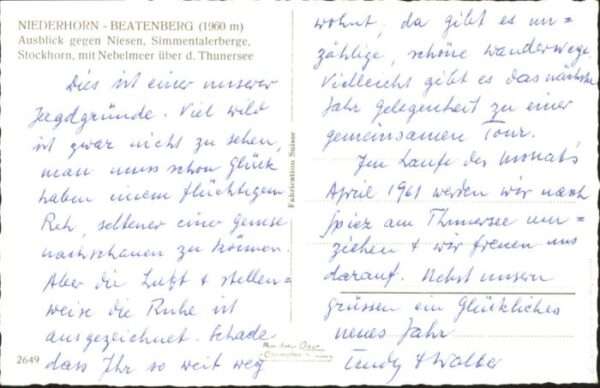 NIEDERHORN - BEATENBERG (1960 m)
Ausblick gegen Niesen, Simmentalerberge,
Stockhorn, mit Nebelmeer über d. Thunersee
Dies ist einer unserer
Jagdgründe. Viel wild
ist zwar nicht zu sehen,
man muss schon Glück
haben einem flüchtigem
Reh, seltener einer gemse
nachschauen zu können.
Aber die Luft + stellen=
weise die Ruhe ist
ausgezeichnet. Schade
dass Ihr so weit weg
2649
Fabrication Suisse
wohnt, da gibt es un=
zählige, schöne wanderwege.
Vielleicht gibt es das nächste
Jahr gelegenheit zu einer
gemeinsamen Tour.
Im Laufe des Monat's
April 1961 werden wir nach
Spiez am Thunersee um=
ziehen + wir freuen uns
darauf. Nebst unsern
grüssen ein Glückliches
neues Jahr
Trudy + Walter